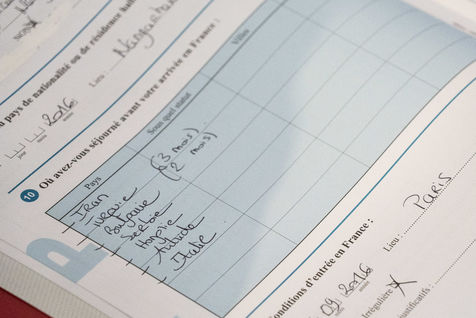 pays de nationalité ou de résidence
2016
Lieu :
jour mois année
10 Où avez-vous séjourné avant votre arrivée en France :
Pays
Sous quel statut
Villes
Iran
Turquie (3 mois)
Bulgarie (2 mois)
Serbie
Hongrie
Autriche
Italie
conditions d'entrée en France :
09 2016
mois année
Lieu : PARIS
Irrégulière X